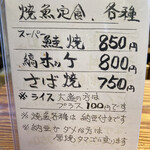 焼魚定食、各種
スーパー鮭焼 850円
縞ホッケ 800円
さば焼 750円
※ライス大盛の方は
プラス100円です
※焼魚各種は納豆付きです
※納豆がダメな方は
厚焼タマゴに変ります